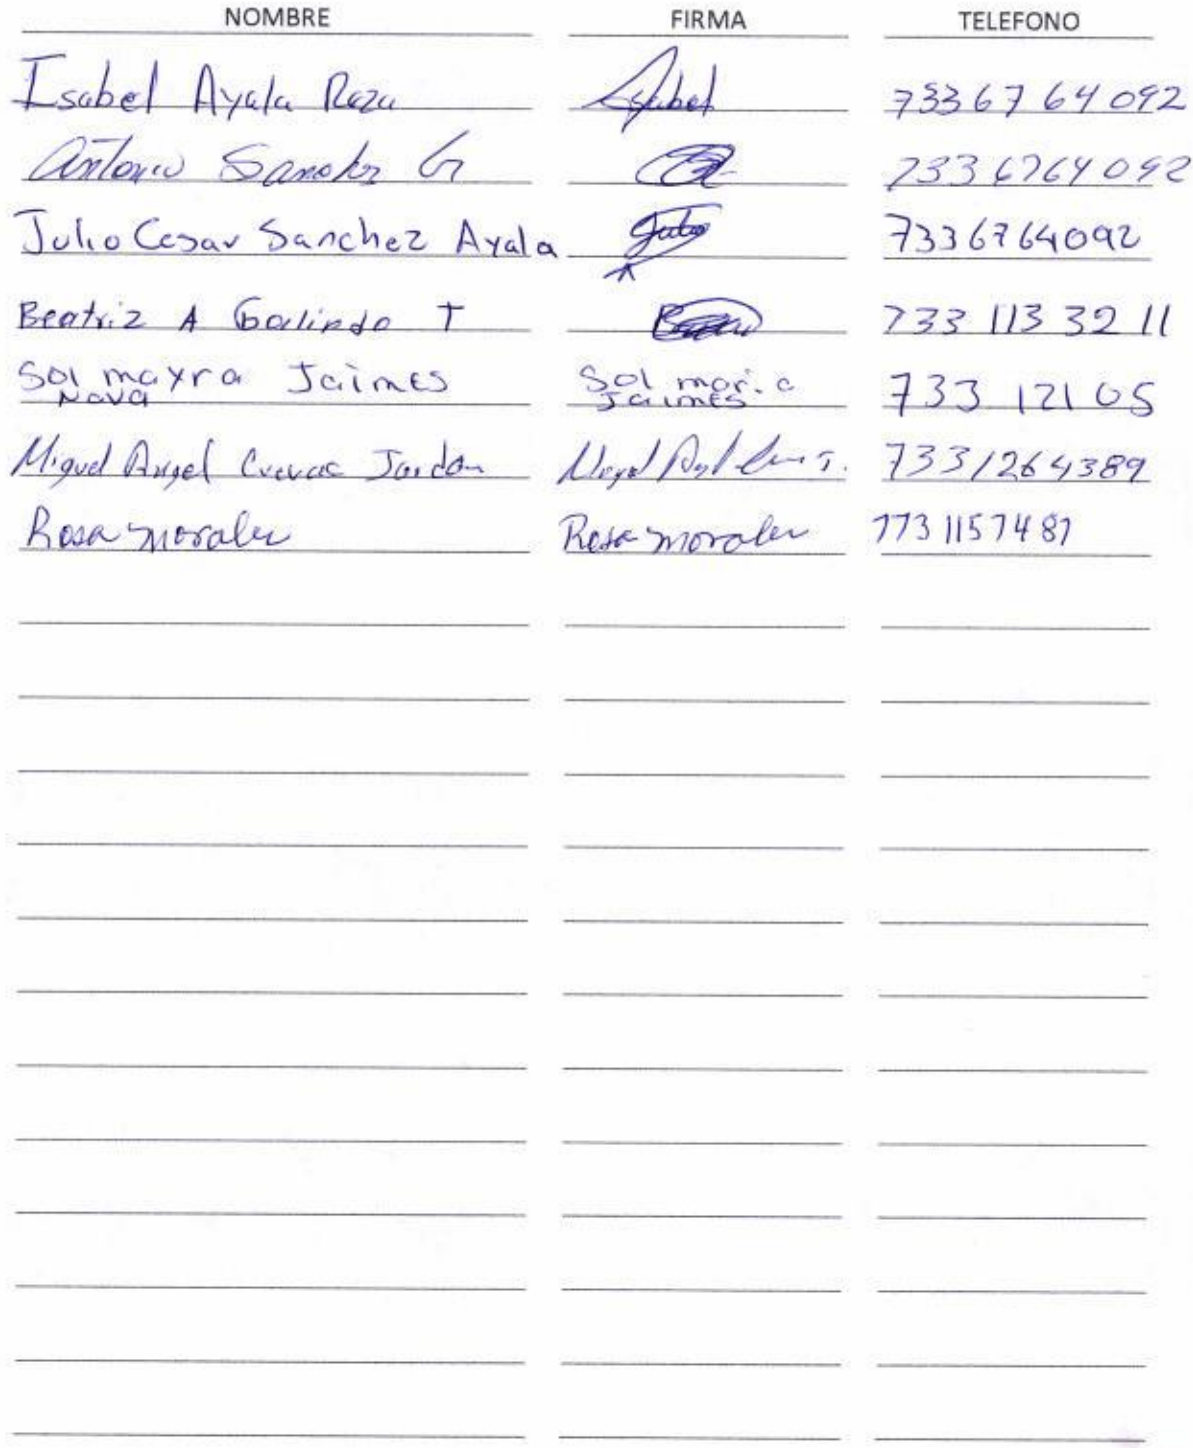 NOMBRE FIRMA TELEFONO
Isabel Ayala Raza Isabel 73367 64 092
Antonio Sanchz G 733 6764092
Julio Cesar Sanchez Ayala Julio 7336764092
Beatriz A Galindo T 733 113 32 11
Sol mayra Jaimes Sol mari a 733 121 05
Nava Jaimes
Miguel Angel Cuevas Jardon Miguel 7331264389
Rosa morales Rosa morales 7731157487